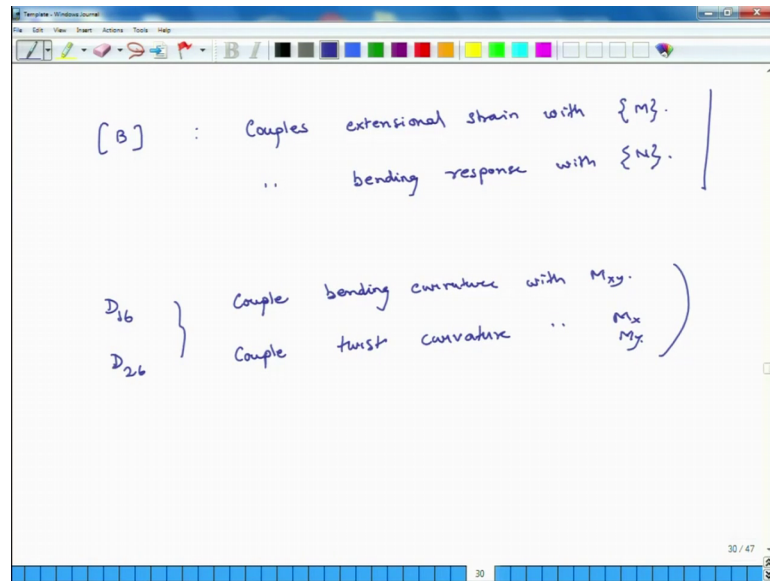 Template - Windows Journal
File Edit View Insert Actions Tools Help
B I
[B] : Couples extensional strain with {M}.
" bending response with {N}.
D16 Couple bending curvature with Mxy.
D26 Couple twist curvature " Mx
My.
30 / 47
30